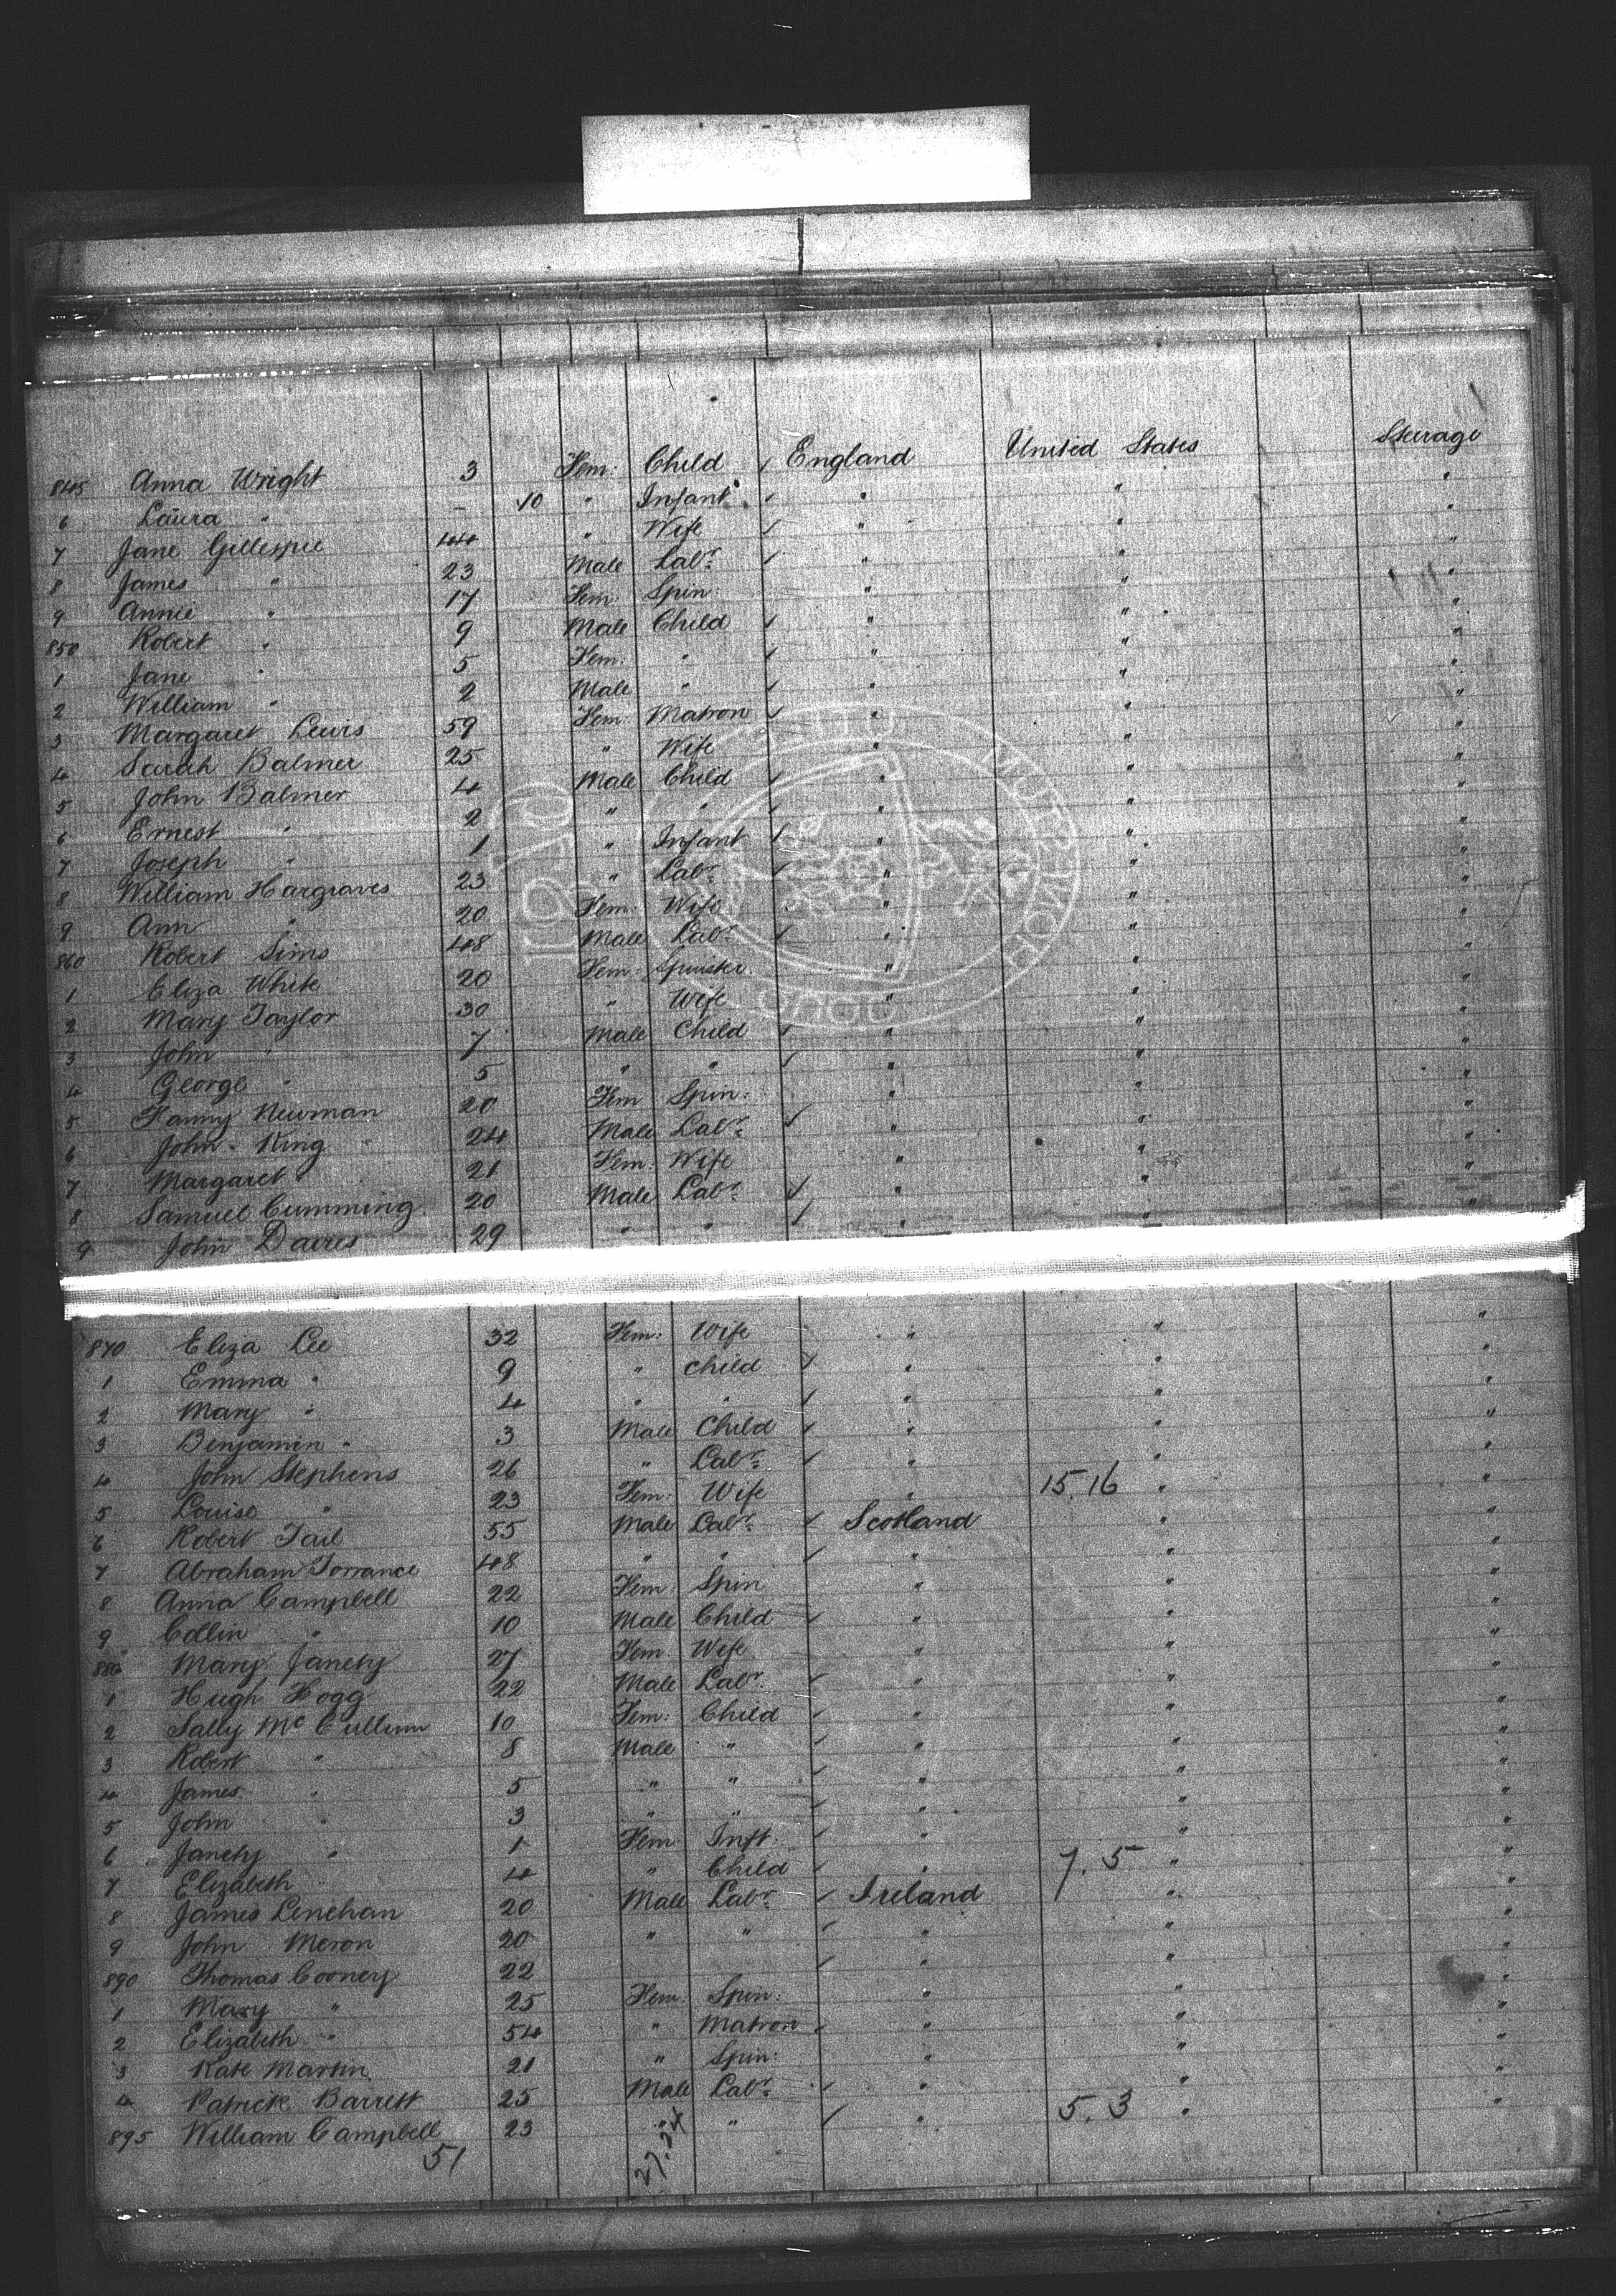 845 Anna Wright 3 Fem: Child England United States Steerage
6 Laura " - 10 " Infant " " "
7 Jane Gillespie 44 " Wife " " "
8 James " 23 Male Labr " " "
9 Annie " 17 Fem: Spin: " " "
850 Robert " 9 Male Child " " "
1 Jane " 5 Fem: " " " "
2 William " 2 Male " " " "
3 Margaret Lewis 59 Fem: Matron " " "
4 Sarah Balmer 25 " Wife " " "
5 John Balmer 4 Male Child " " "
6 Ernest " 2 " " " " "
7 Joseph " 1 " Infant " " "
8 William Hargraves 23 " Labr " " "
9 Ann " 20 Fem: Wife " " "
860 Robert Sims 48 Male Labr " " "
1 Eliza White 20 Fem: Spinster " " "
2 Mary Taylor 30 " Wife " " "
3 John " 7 Male Child " " "
4 George " 5 " " " " "
5 Fanny Newman 20 Fem Spin: " " "
6 John King 24 Male Labr " " "
7 Margaret " 21 Fem: Wife " " "
8 Samuel Cumming 20 Male Labr " " "
9 John Davies 29 " " " " "
870 Eliza Lee 32 Fem: Wife " " "
1 Emma " 9 " Child " " "
2 Mary " 4 " " " " "
3 Benjamin " 3 Male Child " " "
4 John Stephens 26 " Labr " " "
5 Louise " 23 Fem: Wife " 15.16 " "
6 Robert Tait 55 Male Labr Scotland " "
7 Abraham Torrance 48 " " " " "
8 Anna Campbell 22 Fem: Spin " " "
9 Collin " 10 Male Child " " "
880 Mary Janety 27 Fem Wife " " "
1 Hugh Hogg 22 Male Labr " " "
2 Sally McCullum 10 Fem: Child " " "
3 Robert " 8 Male " " " "
4 James " 5 " " " " "
5 John " 3 " " " " "
6 Janety " 1 Fem Inft: " " "
7 Elizabeth " 4 " Child " 7.5 " "
8 James Lenehan 20 Male Labr Ireland " "
9 John Meron 20 " " " " "
890 Thomas Cooney 22 " " "
1 Mary " 25 Fem: Spin: " " "
2 Elizabeth " 54 " Matron " " "
3 Kate Martin 21 " Spin: " " "
4 Patrick Barrett 25 Male Labr " " "
895 William Campbell 23 " " " 5.3 " "
51 27.24